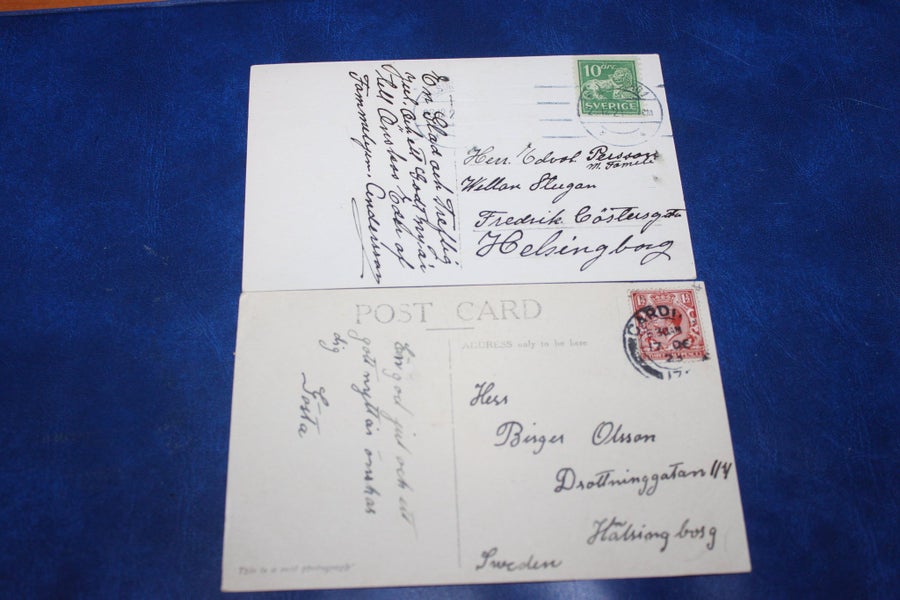 10 öre
SVERIGE
En Glad och Treflig
jul. och ett Godt nyår
till Önskas Eder af
Familjen. Andersson
Herr. Edvol Persson
m. Famili
Wellan Stugan
Fredrik. Göstersgata
Helsingborg
POST CARD
ADDRESS only to be here
CARDI
30 AM
17 DE
23
En god jul och ett
gott nytt år önskas
dig
Gösta
Herr
Birger Olsson
Drottninggatan 114
Hälsingborg
Sweden
This is a real photograph